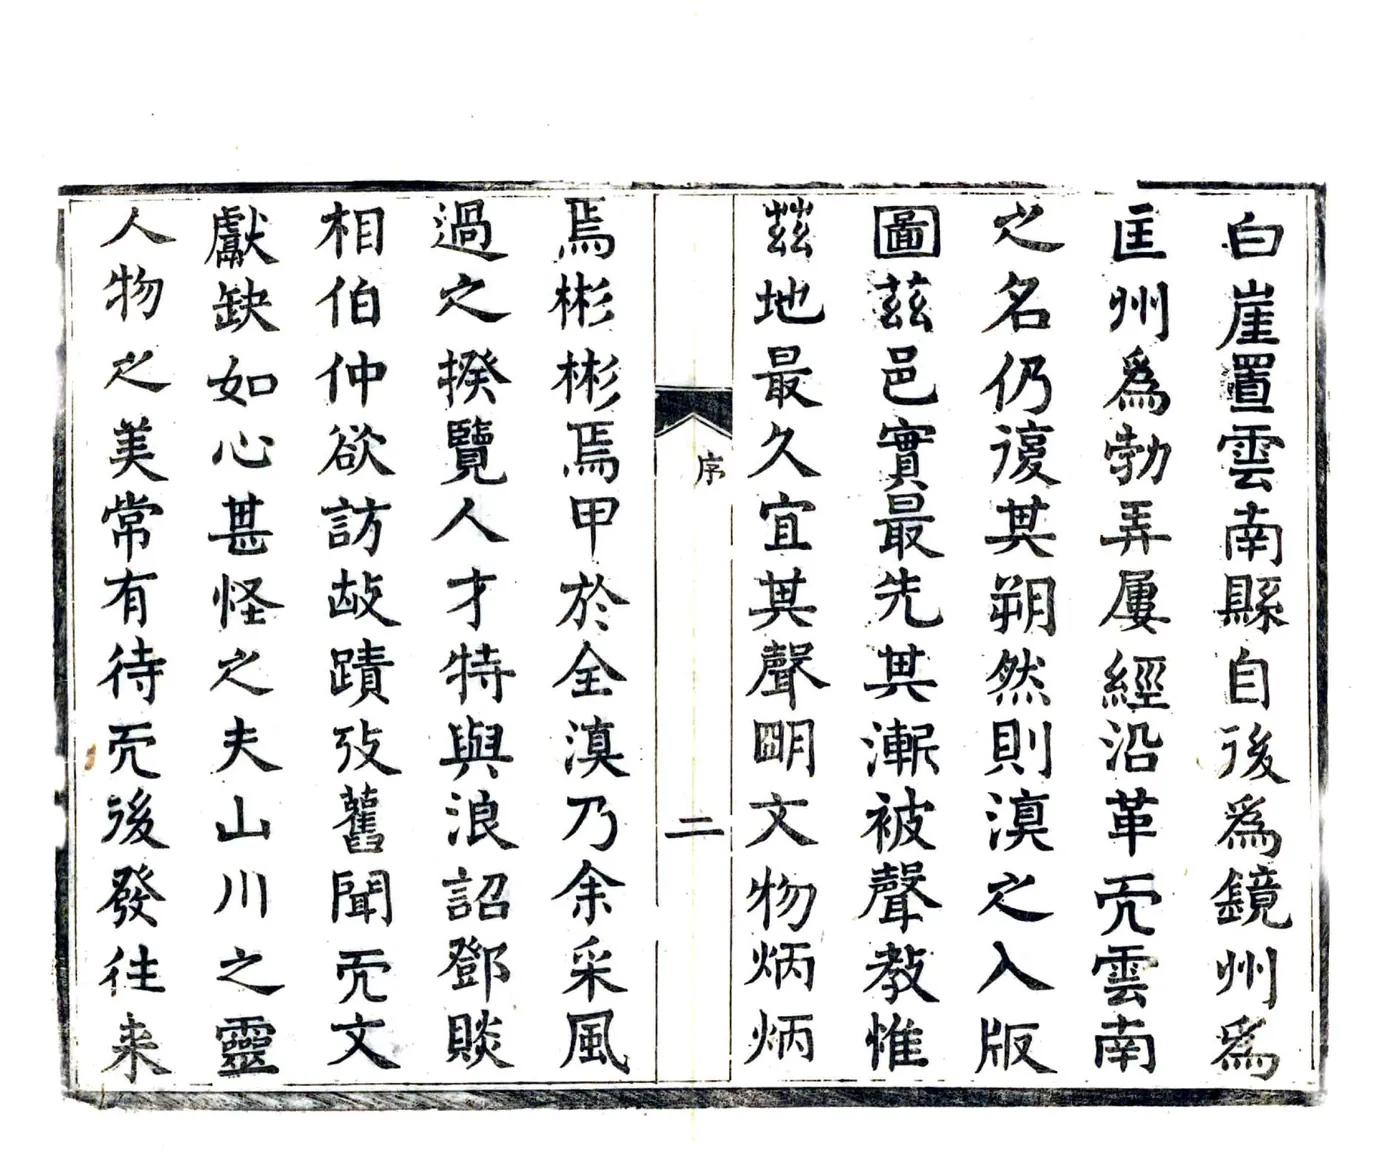 白崖置雲南縣自後爲鏡州爲
匡州爲勃弄屢經沿革而雲南
之名仍復其朔然則滇之入版
圖茲邑實最先其漸被聲教惟
茲地最久宜其聲朙文物炳炳
序
二
焉彬彬焉甲於全滇乃余采風
過之揆覽人才特與浪詔鄧賧
相伯仲欲訪故蹟攷舊聞而文
獻缺如心甚怪之夫山川之靈
人物之美常有待而後發往来